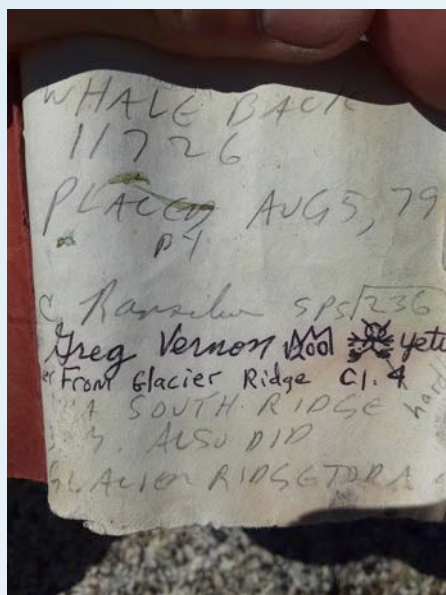 WHALE BACK
11726
PLACED AUG 5, 79
BY
C. SPS 236
Greg Vernon yeti
From Glacier Ridge Cl. 4
SOUTH RIDGE hard
ALSO DID
GLACIER RIDGE